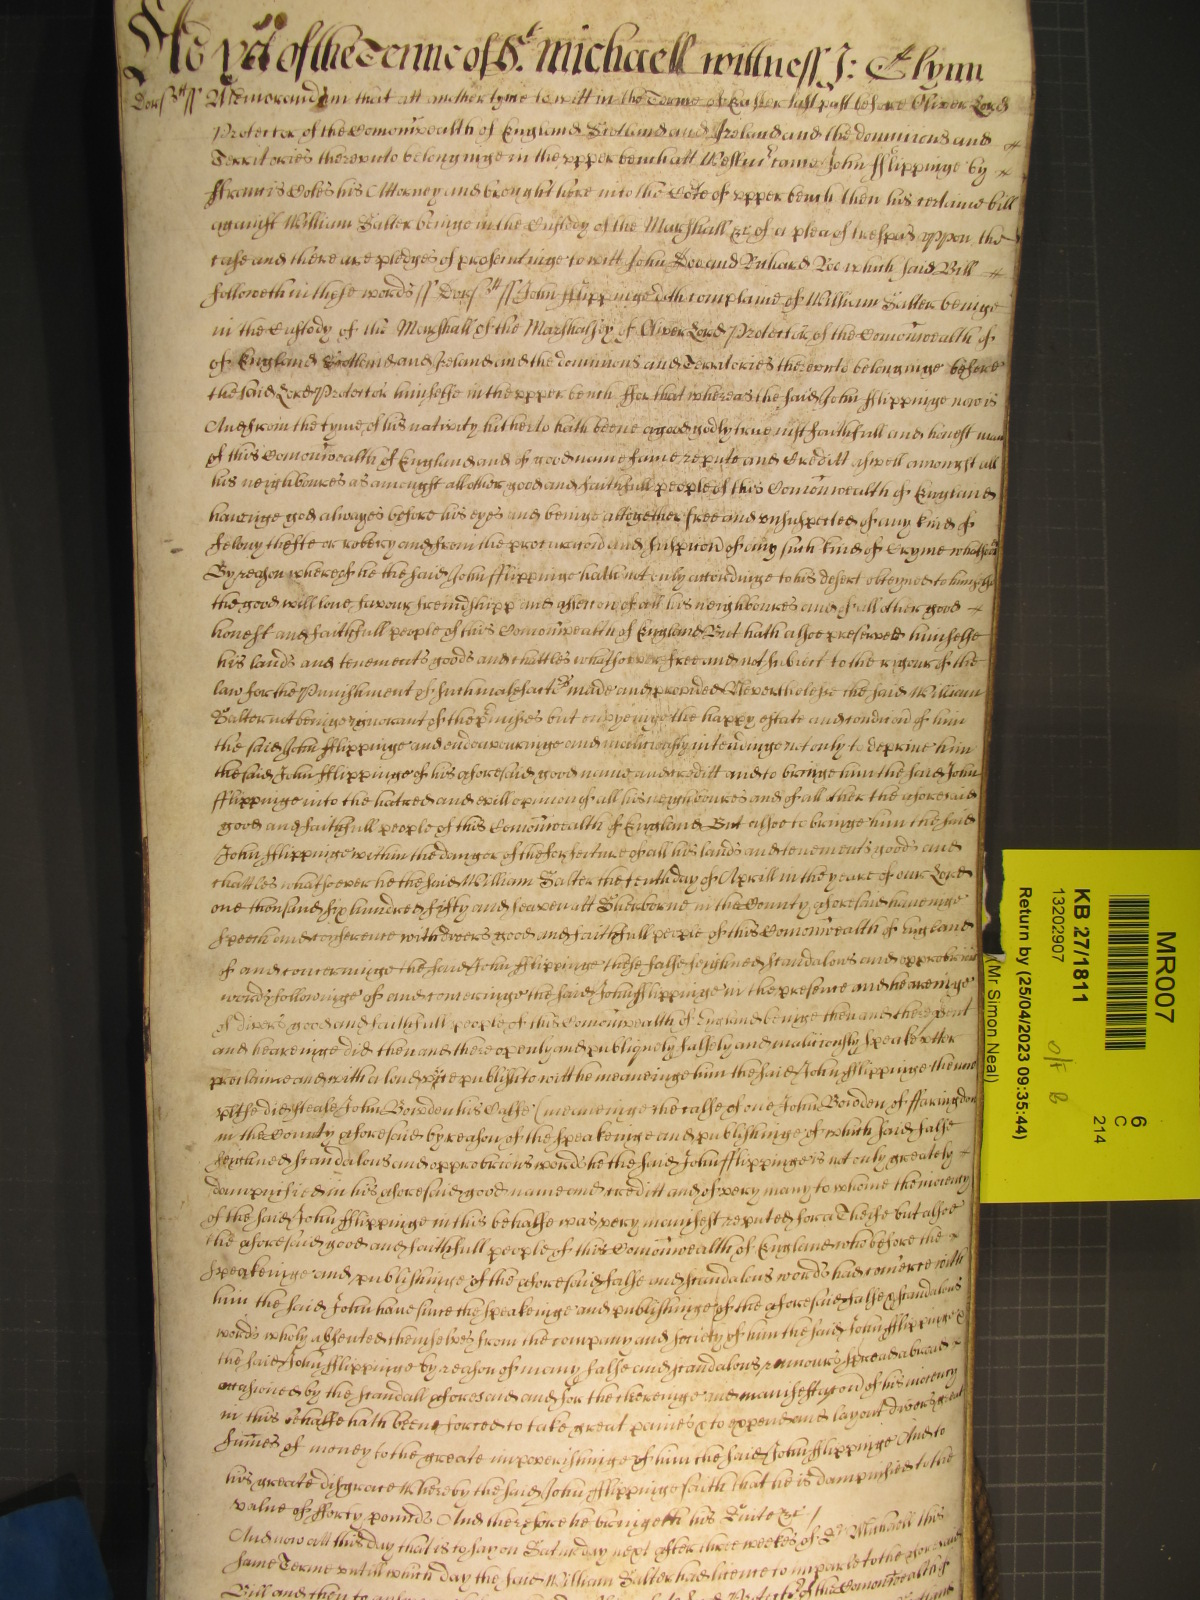 Yet of the Terme of St. Michaell Wittness J: Glynn
Dorsstt ss Memorandum that att another tyme to witt in the Terme of Easter last past before Oliver Lord
Protector of the Comonwealth of England Scotland and Ireland and the dominions and
Territories thereunto belonginge in the upper bench att Westmr came John fflippinge by
ffrancis Coles his Attorney and brought here into the Cort of upper bench then his certaine bill
against William Salter beinge in the Custody of the Marshall &c of a plea of trespas uppon the
case and there are pledges of prosecutinge to witt John Doe and Richard Roe which said Bill
followeth in these words ss Dorsstt ss John fflippinge doth complaine of William Salter beinge
in the Custody of the Marshall of the Marshalsey of Oliver Lord Protector of the Comonwealth of
of England Scotland and Ireland and the dominions and Territories thereunto belonginge before
the said Lord Protector himselfe in the upper bench ffor that whereas the said John fflippinge now is
And from the tyme of his nativity hitherto hath beene a good godly true just faithfull and honest man
of this Comonwealth of England and of good name fame repute and Creditt aswell amongst all
his neighboures as amongst all other good and faithfull people of this Comonwealth of England
haveinge god alwayes before his eyes and beinge altogether free and unsuspected of any kind of
felony thefte or robery and from the procuracion and suspicion of any such kind of Cryme whatsoever
By reason whereof he the said John fflippinge hath not only accordinge to his desert obteyned to himselfe
the good will love favour freindshipp and affection of all his neighboures and of all other good
honest and faithfull people of this Comonwealth of England But hath alsoe preserved himselfe
his lands and tenements goods and chattles whatsoever free and not subiect to the rigour of the
law for the Punishment of such malefactrs made and provided Neverthelesse the said William
Salter not beinge ignorant of the premises but envyeinge the happy estate and condicion of him
the said John fflippinge and endeavouringe and maliciously intendinge not only to deprive him
the said John fflippinge of his aforesaid good name and creditt and to bringe him the said John
fflippinge into the hatred and evill opinion of all his neighboures and of all other the aforesaid
good and faithfull people of this Comonwealth of England But alsoe to bringe him the said
John fflippinge within the danger of the forfeiture of all his lands and tenements goods and
chattles whatsoever he the said William Salter the tenth day of Aprill in the yeare of our Lord
one thousand six hundred fifty and seaven att Sherborne in the County aforesaid haveinge
speech and conference with divers good and faithfull people of this Comonwealth of England
of and concerninge the said John fflippinge these false feighned scandalous and opprobrious
words followinge of and concerninge the said John fflippinge in the presence and heareinge
of divers good and faithfull people of this Comonwealth of England beinge then and there present
and heareinge did then and there openly and publiquely falsely and maliciously speake utter
proclaime and with a loud voice publish to witt he meaneinge him the said John fflippinge then
did steale John Bowden his Calfe (meaneinge the calfe of one John Bowden of ffaringdon
in the County aforesaid by reason of the speakeinge and publishinge of which said false
feighned scandalous and opprobrious words he the said John fflippinge is not only greately
dampnified in his aforesaid good name and creditt and of very many to whome the inocency
of the said John fflippinge in this behalfe was very manifest reputed for a Theife but alsoe
the aforesaid good and faithfull people of this Comonwealth of England who before the
speakeinge and publishinge of the aforesaid false and scandalous words had comerce with
him the said John have since the speakeinge and publishinge of the aforesaid false & scandalous
words wholy absented themselves from the company and society of him the said John fflippinge &
the said John fflippinge by reason of many false and scandalous rumours spread abroad
occasioned by the scandall aforesaid and for the cleereinge and manifestacion of his inocency
in this behalfe hath been forced to take great paines & to expend and layout divers great
sumes of money to the greate impoverishinge of him the said John fflippinge And to
his greate disgrace Whereby the said John fflippinge saith that he is dampnified to the
value of fforty pounds And therefore he bringeth his Suite &c /
And now att this day that is to say on Saturday next after three weekes of St Michaell this
same Terme untill which day the said William Salter had licence to imparle to the aforesaid
Bill and then to
MR007
6
C
214
KB 27/1811
13202907
Return by (25/04/2023 09:35:44)
(Mr Simon Neal)